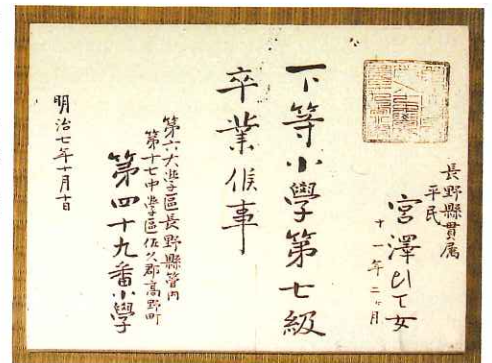 長野縣貫属
平民
宮澤 女
十一年二ヶ月
下等小學第七級
卒業候事
第六大學區長野縣管内
第十七中學區佐久郡高野町
第四十九番小學
明治七年十月十日